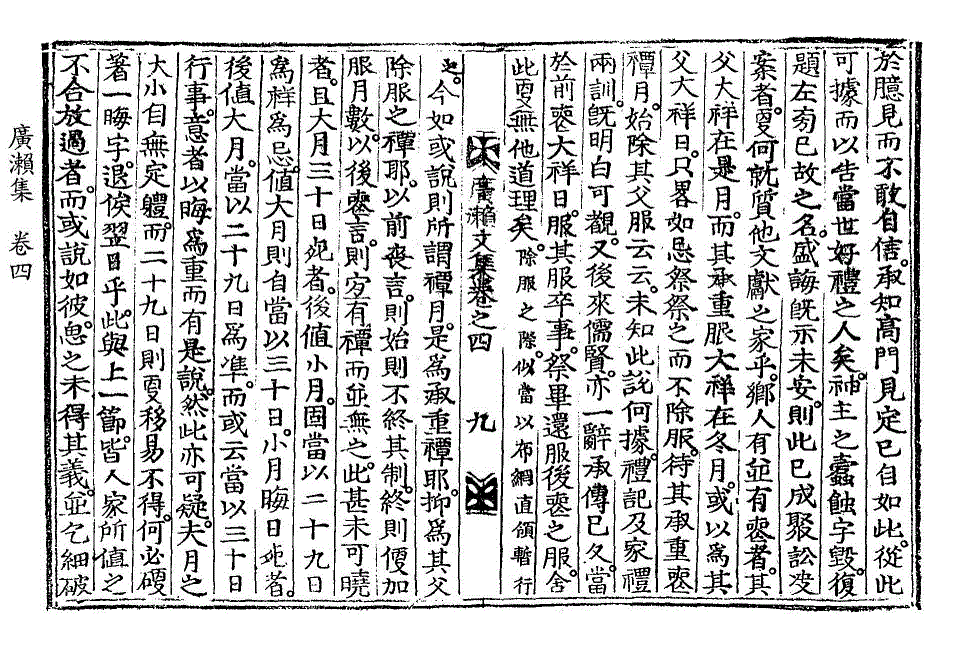 於臆見而不敢自信。承知高門見定已自如此。從此
可據而以告當世好禮之人矣。神主之蠹蝕字毁。復
題左旁已故之名。盛誨旣示未安。則此已成聚訟。
案者。更何就質他文獻之家乎。鄕人有並有喪者。其
父大祥在是月。而其承重服大祥在冬月。或以爲其
父大祥日。只畧如忌祭祭之而不除服。待其承重喪
禫月。始除其父服云云。未知此說何據。禮記及家禮
兩訓。旣明白可觀。又後來儒賢。亦一辭承傳已久。當
於前喪大祥日。服其服卒事。祭畢還服後喪之服。舍
此更無他道理矣。除服之際。似當以布網直領暫行
廣瀨文集卷之四
九
也。今如或說則所謂禫月。是爲承重禫耶。抑爲其父
除服之禫耶。以前喪言。則始則不終其制。終則便加
服月數。以後喪言。則宜有禫而並無之。此甚未可曉
者。且大月三十日死者。後値小月。固當以二十九日
爲祥爲忌。値大月則自當以三十日。小月晦日死者。
後値大月。當以二十九日爲準。而或云當以三十日
行事。意者以晦爲重而有是說。然此亦可疑。夫月之
大小自無定體。而二十九日則更移易不得。何必硬
著一晦字。退俟翌日乎。此與上一節。皆人家所値之
不合放過者。而或說如彼。恐之未得其義。並乞細破
廣瀨集 卷四